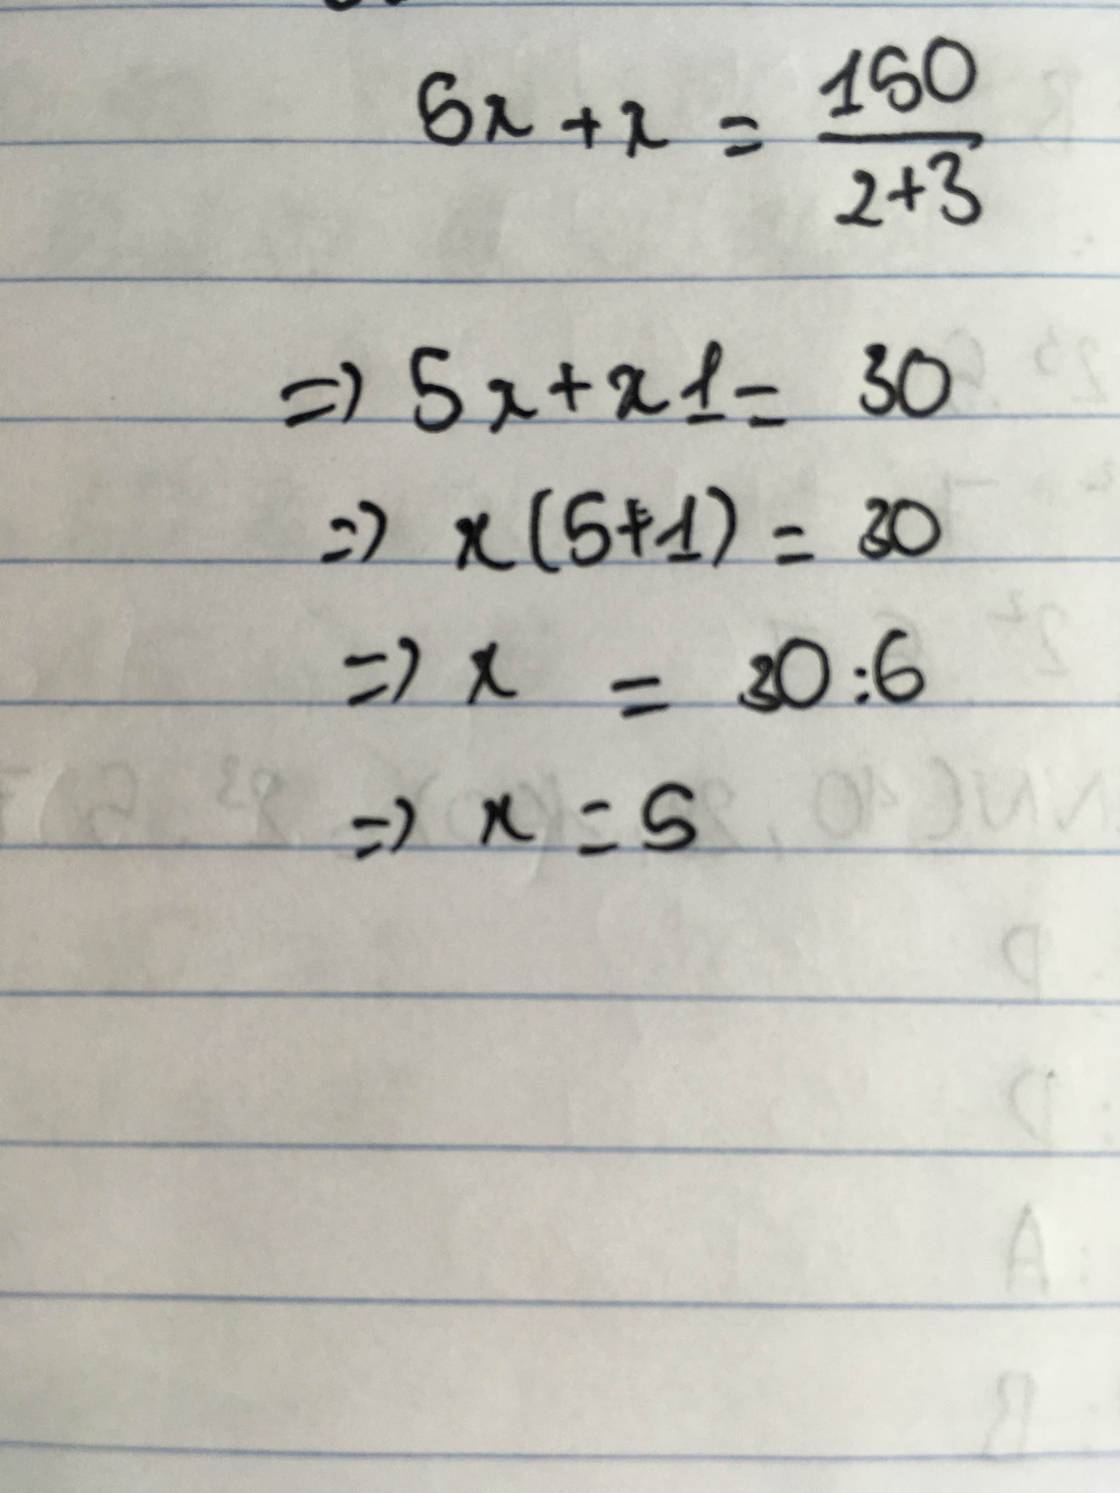 5x + x = 150 / 2+3
=> 5x + x1 = 30
=> x(5+1) = 30
=> x = 30:6
=> x = 5